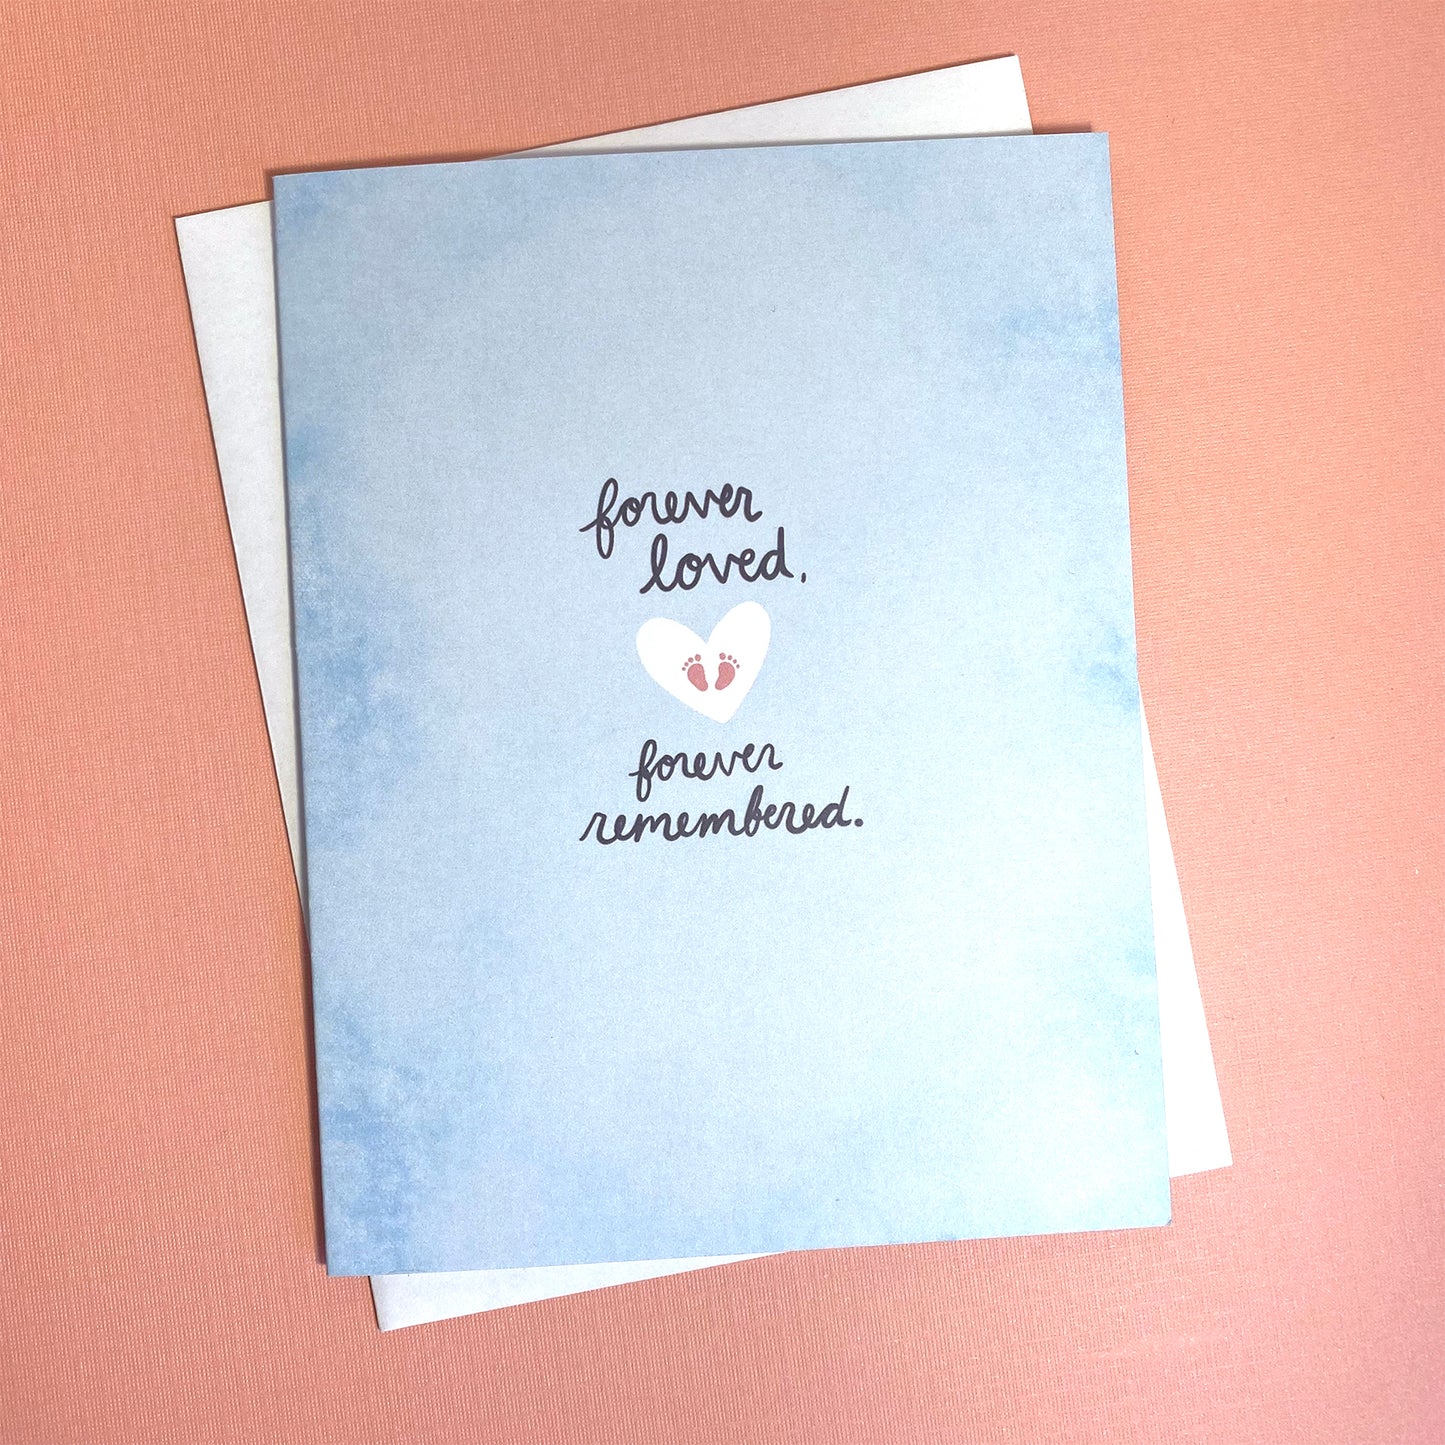 forever
loved,
forever
remembered.